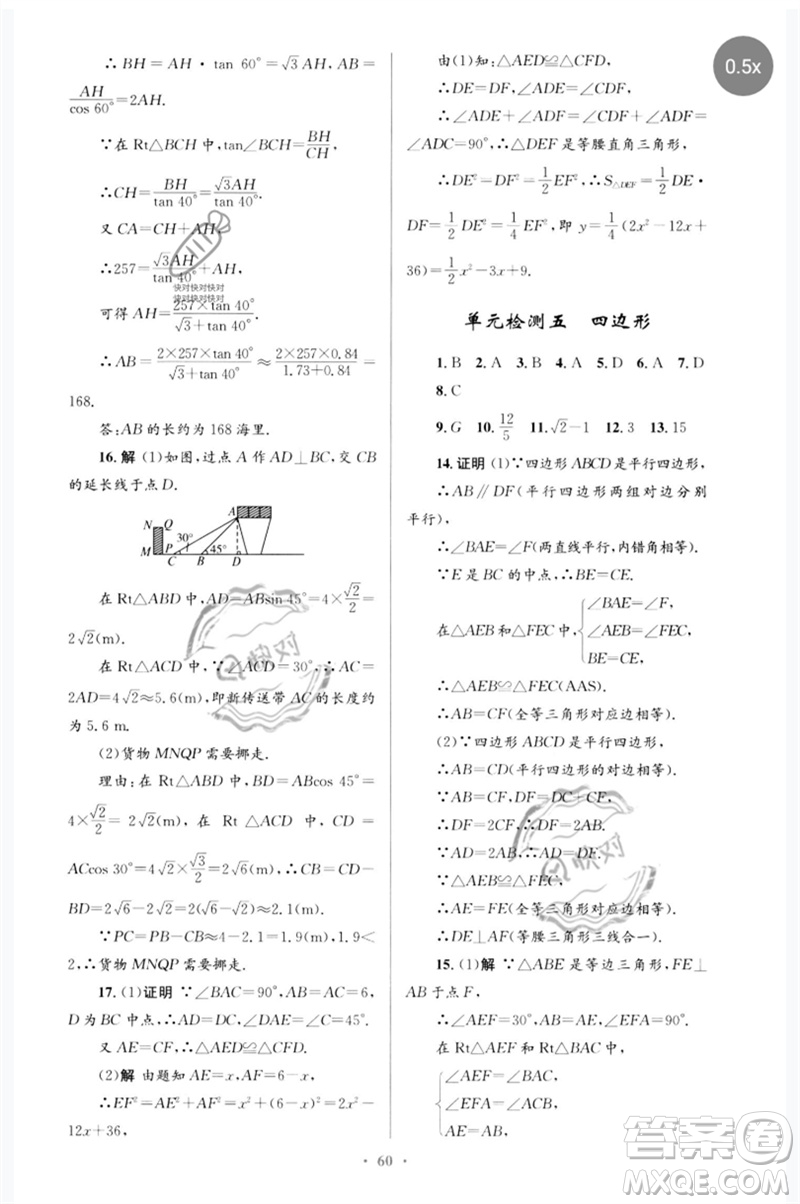 ∴BH=AH·tan 60°=√3AH,AB=
AH/cos 60°=2AH.
∵在 Rt△BCH 中,tan∠BCH=BH/CH,
∴CH=BH/tan 40°=√3AH/tan 40°.
又 CA=CH+AH,
∴257=√3AH/tan 40°+AH.
快对快对快对
快对快对快对
可得 AH=257×tan 40°/(√3+tan 40°).
∴AB=2×257×tan 40°/(√3+tan 40°)≈2×257×0.84/(1.73+0.84)=
168.
答:AB 的长约为 168 海里.
16.解 (1)如图,过点 A 作 AD⊥BC,交 CB
的延长线于点 D.
N Q A
30°
45°
M P C B D
在 Rt△ABD 中,AD=ABsin 45°=4×√2/2=
2√2(m).
在 Rt△ACD 中,∵∠ACD=30°,∴AC=
2AD=4√2≈5.6(m),即新传送带 AC 的长度约
为 5.6 m.
(2)货物 MNQP 需要挪走.
理由:在 Rt△ABD 中,BD=ABcos 45°=
4×√2/2=2√2(m),在 Rt△ACD 中,CD=
ACcos 30°=4√2×√3/2=2√6(m),∴CB=CD-
BD=2√6-2√2=2(√6-√2)≈2.1(m).
∵PC=PB-CB≈4-2.1=1.9(m),1.9<
2,∴货物 MNQP 需要挪走.
17.(1)证明 ∵∠BAC=90°,AB=AC=6,
D 为 BC 中点,∴∠BAD=∠DAC=∠C=45°.
又 AE=CF,∴△AED≌△CFD.
(2)解 由题知 AE=x,AF=6-x,
∴EF²=AE²+AF²=x²+(6-x)²=2x²-
12x+36,
由(1)知:△AED≌△CFD,
∴DE=DF,∠ADE=∠CDF,
∴∠ADE+∠ADF=∠CDF+∠ADF=
∠ADC=90°,∴△DEF 是等腰直角三角形,
∴DE²=DF²=1/2EF²,∴S△DEF=1/2DE·
DF=1/2DE²=1/4EF²,即 y=1/4(2x²-12x+
36)=1/2x²-3x+9.
单元检测五 四边形
1.B 2.A 3.B 4.A 5.D 6.A 7.D
8.C
9.G 10.12/5 11.√2-1 12.3 13.15
14.证明 (1)∵四边形 ABCD 是平行四边形,
∴AB∥DF(平行四边形两组对边分别
平行),
∴∠BAE=∠F(两直线平行,内错角相等).
∵E 是 BC 的中点,∴BE=CE.
在△AEB 和△FEC 中,{∠BAE=∠F,
∠AEB=∠FEC,
BE=CE,
∴△AEB≌△FEC(AAS).
∴AB=CF(全等三角形对应边相等).
(2)∵四边形 ABCD 是平行四边形,
∴AB=CD(平行四边形的对边相等).
∵AB=CF,DF=DC+CF,
∴DF=2CF,∴DF=2AB.
∵AD=2AB,∴AD=DF.
∵△AEB≌△FEC,
∴AE=FE(全等三角形对应边相等).
∴DE⊥AF(等腰三角形三线合一).
15.(1)解 ∵△ABE 是等边三角形,FE⊥
AB 于点 F,
∴∠AEF=30°,AB=AE,∠EFA=90°.
在 Rt△AEF 和 Rt△BAC 中,
{∠AEF=∠BAC,
∠EFA=∠ACB,
AE=AB,
· 60 ·
0.5x
快对
快对
答案卷
MXQE.COM